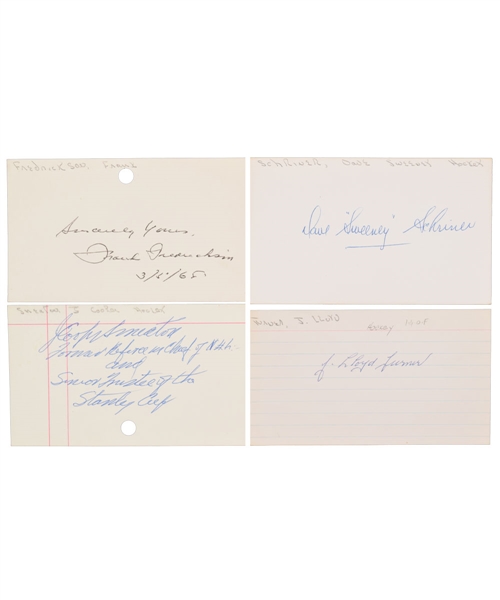 Fredrickson, Frank
Sincerely Yours,
Frank Fredrickson
3/5/65
Schriner, Dave Sweeney Hockey
Dave "Sweeney" Schriner
Smeaton, J Cooper Hockey
Cooper Smeaton
Former Referee in Chief of N.H.L.
and
Senior Trustee of the
Stanley Cup
Turner, J. Lloyd
Hockey
J. Lloyd Turner